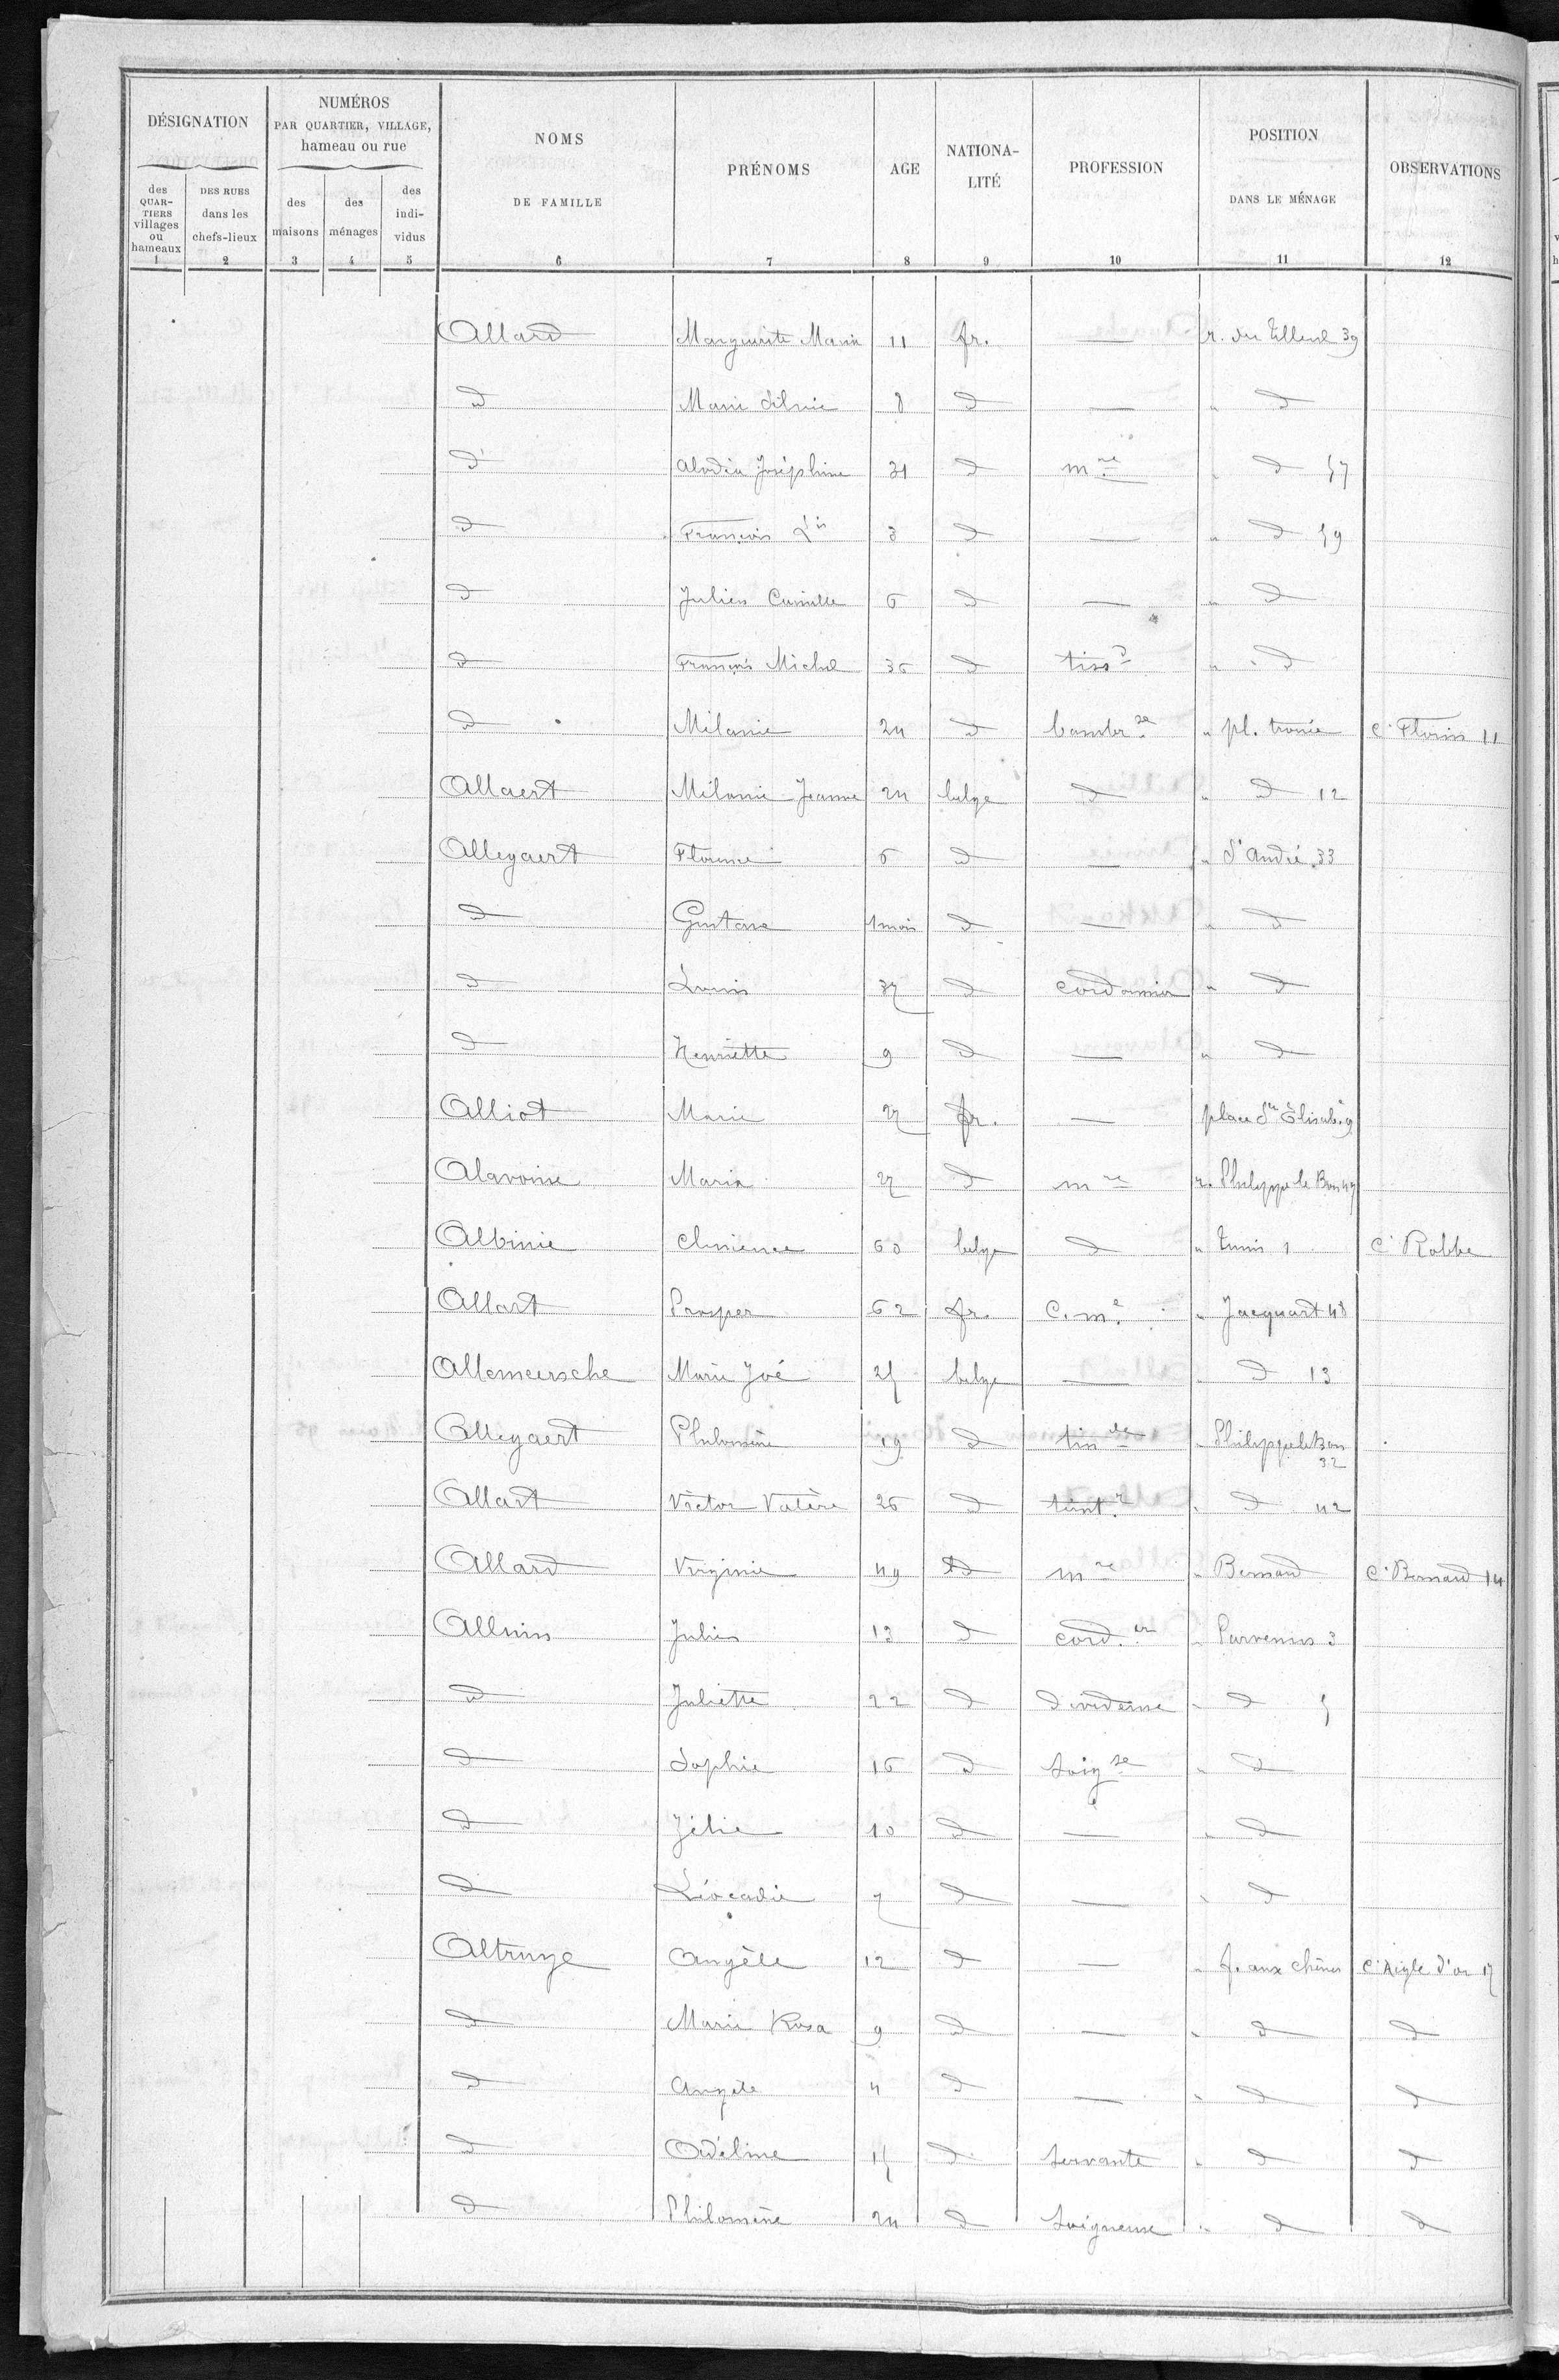 DÉSIGNATION
des QUARTIERS villages ou hameaux
DES RUES dans les chefs-lieux
NUMÉROS
PAR QUARTIER, VILLAGE,
hameau ou rue
des maisons
des ménages
des individus
NOMS
DE FAMILLE
PRÉNOMS
AGE
NATIONALITÉ
PROFESSION
POSITION
DANS LE MÉNAGE
OBSERVATIONS
1 2 3 4 5 6 7 8 9 10 11 12
Allard Marguerite Maria 11 fr. — r. du Tilleul 39
d Marie Silvie 8 d — " d
d Joséphine 31 d mre " d 57
d François Lis 3 d — " d 59
d Julien Camille 6 d — " d
d François Michel 36 d tissd " d
d Mélanie 24 d bambrse " pl. trouée c. Florin 11
Allaert Mélanie Jeanne 24 belge d " d 12
Allegaert Florence 6 d — " St André 33
d Gustave 1 mois d — " d
d Louis 37 d cordonnier " d
d Henriette 9 d — " d
Alliot Marie 27 fr. — place Ste Élisab. 9
Alavoine Maria 27 d mre r. Philippe le Bon 47
Albinie Clémence 60 belge d " Tunis 1 c. Robbe
Allart Prosper 62 fr. c. me " Jacquart 48
Allemeersche Marie Joé 25 belge — " d 13
Allegaert Philomène 19 d tissde " Philippe le Bon 32
Allart Victor Valère 26 d teintr " d 42
Allard Virginie 49 d mre " Bernard c. Bernard 14
Julien 13 d cord.er " Parvenus 3
d Juliette 22 d dévideuse " d 5
d Sophie 16 d soigse " d
d Zélie 10 d — " d
d Léocadie 7 d — " d
Altruye Angèle 12 d — " f. aux chênes c. Aigle d'or 17
d Marie Rosa 9 d — " d d
d Angèle 4 d — " d d
d Odéline 15 d servante " d d
d Philomène 24 d soigneuse " d d